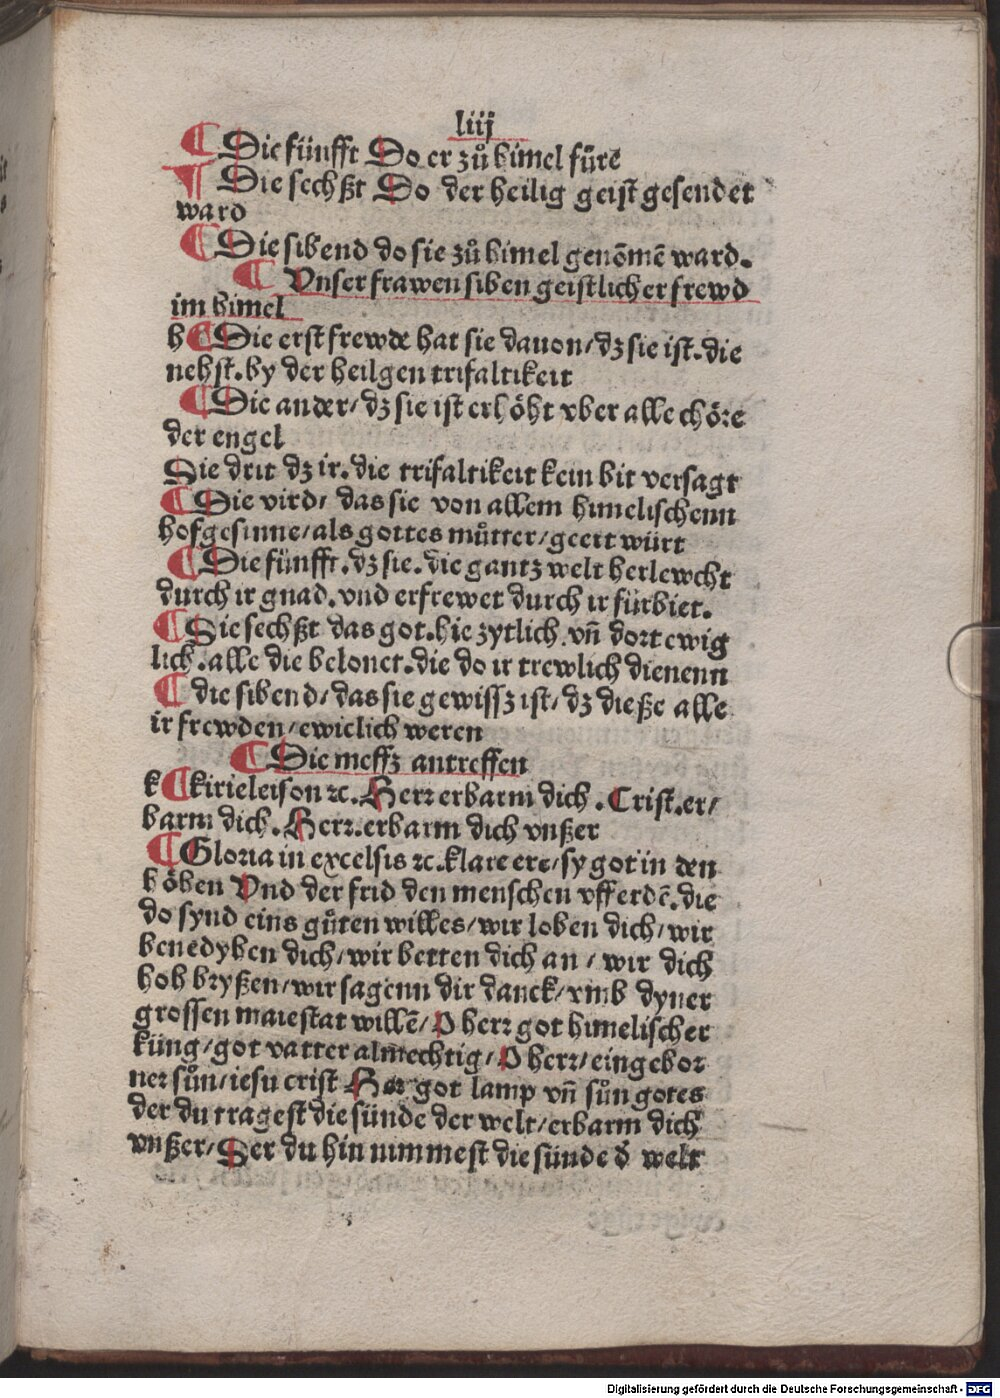 liij
¶ Die fünfft Do er zů himel fůrē
¶ Die sechßt Do der heilig geist gesendet
ward
¶ Die sibend do sie zů himel genōmē ward.
¶ Vnser frawen siben geistlicher frewd
im himel
h ¶ Die erst frewde hat sie dauon/ dz sie ist. die
nehst. by der heilgen trifaltikeit
¶ Die ander/ dz sie ist erhöht vber alle chöre
der engel
Die drit dz ir. die trifaltikeit kein bit versagt
¶ Die vird/ das sie von allem himelischenn
hofgesinne/ als gottes můtter/ geert würt
¶ Die fünfft. dz sie. die gantz welt herlewcht
durch ir gnad. vnd erfrewet durch ir fürbiet.
¶ Die sechßt das got. hie zytlich. vn̄ dort ewig
lich. alle die belonet. die do ir trewlich dienenn
¶ die sibend/ das sie gewissz ist/ dz dieße alle
ir frewden/ ewiclich weren
¶ Die meſſz antreffen
k ¶ kirieleison ⁊c. Herr erbarm dich. Crist. er/
barm dich. Herr. erbarm dich vnßer
¶ Gloria in excelsis ⁊c. klare ere/ sy got in den
höhen Vnd der frid den menschen vff erdē. die
do synd eins gůten willes/ wir loben dich/ wir
benedyhen dich/ wir betten dich an/ wir dich
hoh bryßen/ wir sagenn dir danck/ vmb dyner
grossen maiestat willē/ O herr got himelischer
küng/ got vatter almechtig/ O herr/ eingebor
ner sůn/ iesu crist Her got lamp vn̄ sůn gotes
der du tragest die sünde der welt/ erbarm dich
vnßer/ Der du hin nimmest die sünde d̕ welt
Digitalisierung gefördert durch die Deutsche Forschungsgemeinschaft - DFG